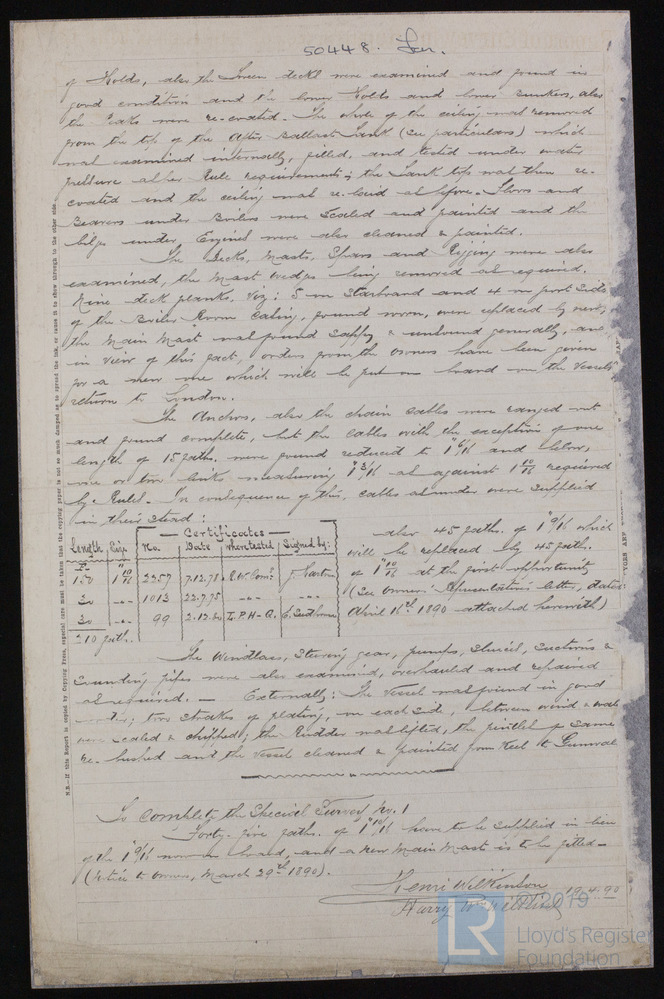 50448. Lon.
of Holds, also the Screen deckl were examined and found in
good condition and the lower Holds and lower Bunkers, also
the Peaks were re-coated. The whole of the ceiling was removed
from the top of the After Ballast Tank (see particulars) which
was examined internally, filled, and tested under water
pressure as per Rule requirements; the Tank top was then re-
coated and the ceiling was re-laid as before. Floors and
Bearers under Boilers were Scaled and painted and the
bilges under Engines were also cleaned & painted.
The Decks, Masts, Spars and Rigging were also
examined, the Mast wedges being removed as required.
Nine deck planks, Viz: 5 on Starboard and 4 on port Side
of the Boiler Room Casing, found worn, were replaced by new;
the Main Mast was found Sappy & unsound generally, and
in view of this fact, orders from the owners have been given
for a new one which will be put on board on the Vessel's
return to London.
The Anchors, also the chain cables were ranged out
and found complete, but the cables with the exception of one
length of 15 faths. were found reduced to 1" 6/16 and below,
one or two links measuring 1" 3/16 as against 1 10/16 required
by Rule. In consequence of this, cables as under were supplied
in their stead:
Certificates
Length Size No. Date where tested Signed by:
150 1 10/16 2257 7.12.78
30 1013 22.7.75
30 99 2.12.80 L.P.H-Q.
210 fath.
also 45 fath. of 1" 9/16 which
will be replaced by 45 fath.
of 1" 10/16 at the first opportunity
(See owners' Representative's letter, dated
April 16th 1890 attached herewith)
The Windlass, Steering gear, pumps, Sluices, Suctions &
Sounding pipes were also examined, overhauled and repaired
as required. — Externally: The vessel was found in good
two strakes of plating, on each side, between wind & water
were scaled & chipped; the Rudder was lifted, the pintles of same
re-bushed and the vessel cleaned & painted from Keel to Gunwale
To complete the Special Survey No. 1
Forty-five faths. of 1" 10/16 have to be supplied in lieu
of the 1" 9/16 now on board, and a new Main Mast is to be fitted -
(Notice to owners, March 29th 1890).
Henri Wilkinson
19.4.90
Harry
N.B.—If this Report is copied by Copying Press, especial care must be taken that the copying paper is not so much damped as to spread the ink, or cause it to show through to the other side.
© 2019
LR
Lloyd's Register
Foundation